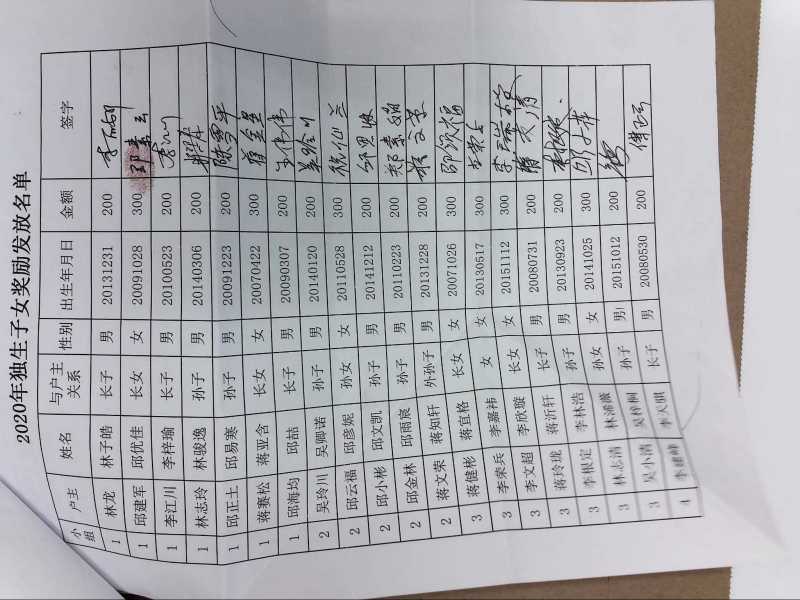 2020年独生子女奖励发放名单
小组 户主 姓名 与户主关系 性别 出生年月日 金额 签字
1 林龙 林子皓 长子 男 20131231 200
1 邱建军 邱优佳 长女 女 20091028 300
1 李江川 李梓瑜 长子 男 20100523 200
1 林志玲 林骏逸 孙子 男 20140306 200
1 邱正土 邱易寒 孙子 男 20091223 200 陈雪平
1 蒋赛松 蒋亚含 长女 女 20070422 300
1 邱海均 邱喆 长子 男 20090307 200
2 吴玲川 吴卿诺 孙子 男 20140120 200 吴玲川
2 邱云福 邱彦妮 孙女 女 20110528 300
2 邱小彬 邱文凯 孙子 男 20141212 200
2 邱金林 邱雨宸 孙子 男 20110223 200 郑素娟
2 蒋文荣 蒋知轩 外孙子 男 20131228 200
3 蒋健彬 蒋宜格 长女 女 20071026 300
3 李荣兵 李嘉祎 女 女 20130517 300
3 李文超 李欣璇 长女 女 20151112 300
3 蒋玲珑 蒋沂轩 长子 男 20080731 200
3 李根定 李林浩 孙子 男 20130923 200
3 林志清 林浠薇 孙女 女 20141025 300
3 吴小清 吴梓桐 孙子 男 20151012 200
4 李建峰 李天骐 长子 男 20080530 200